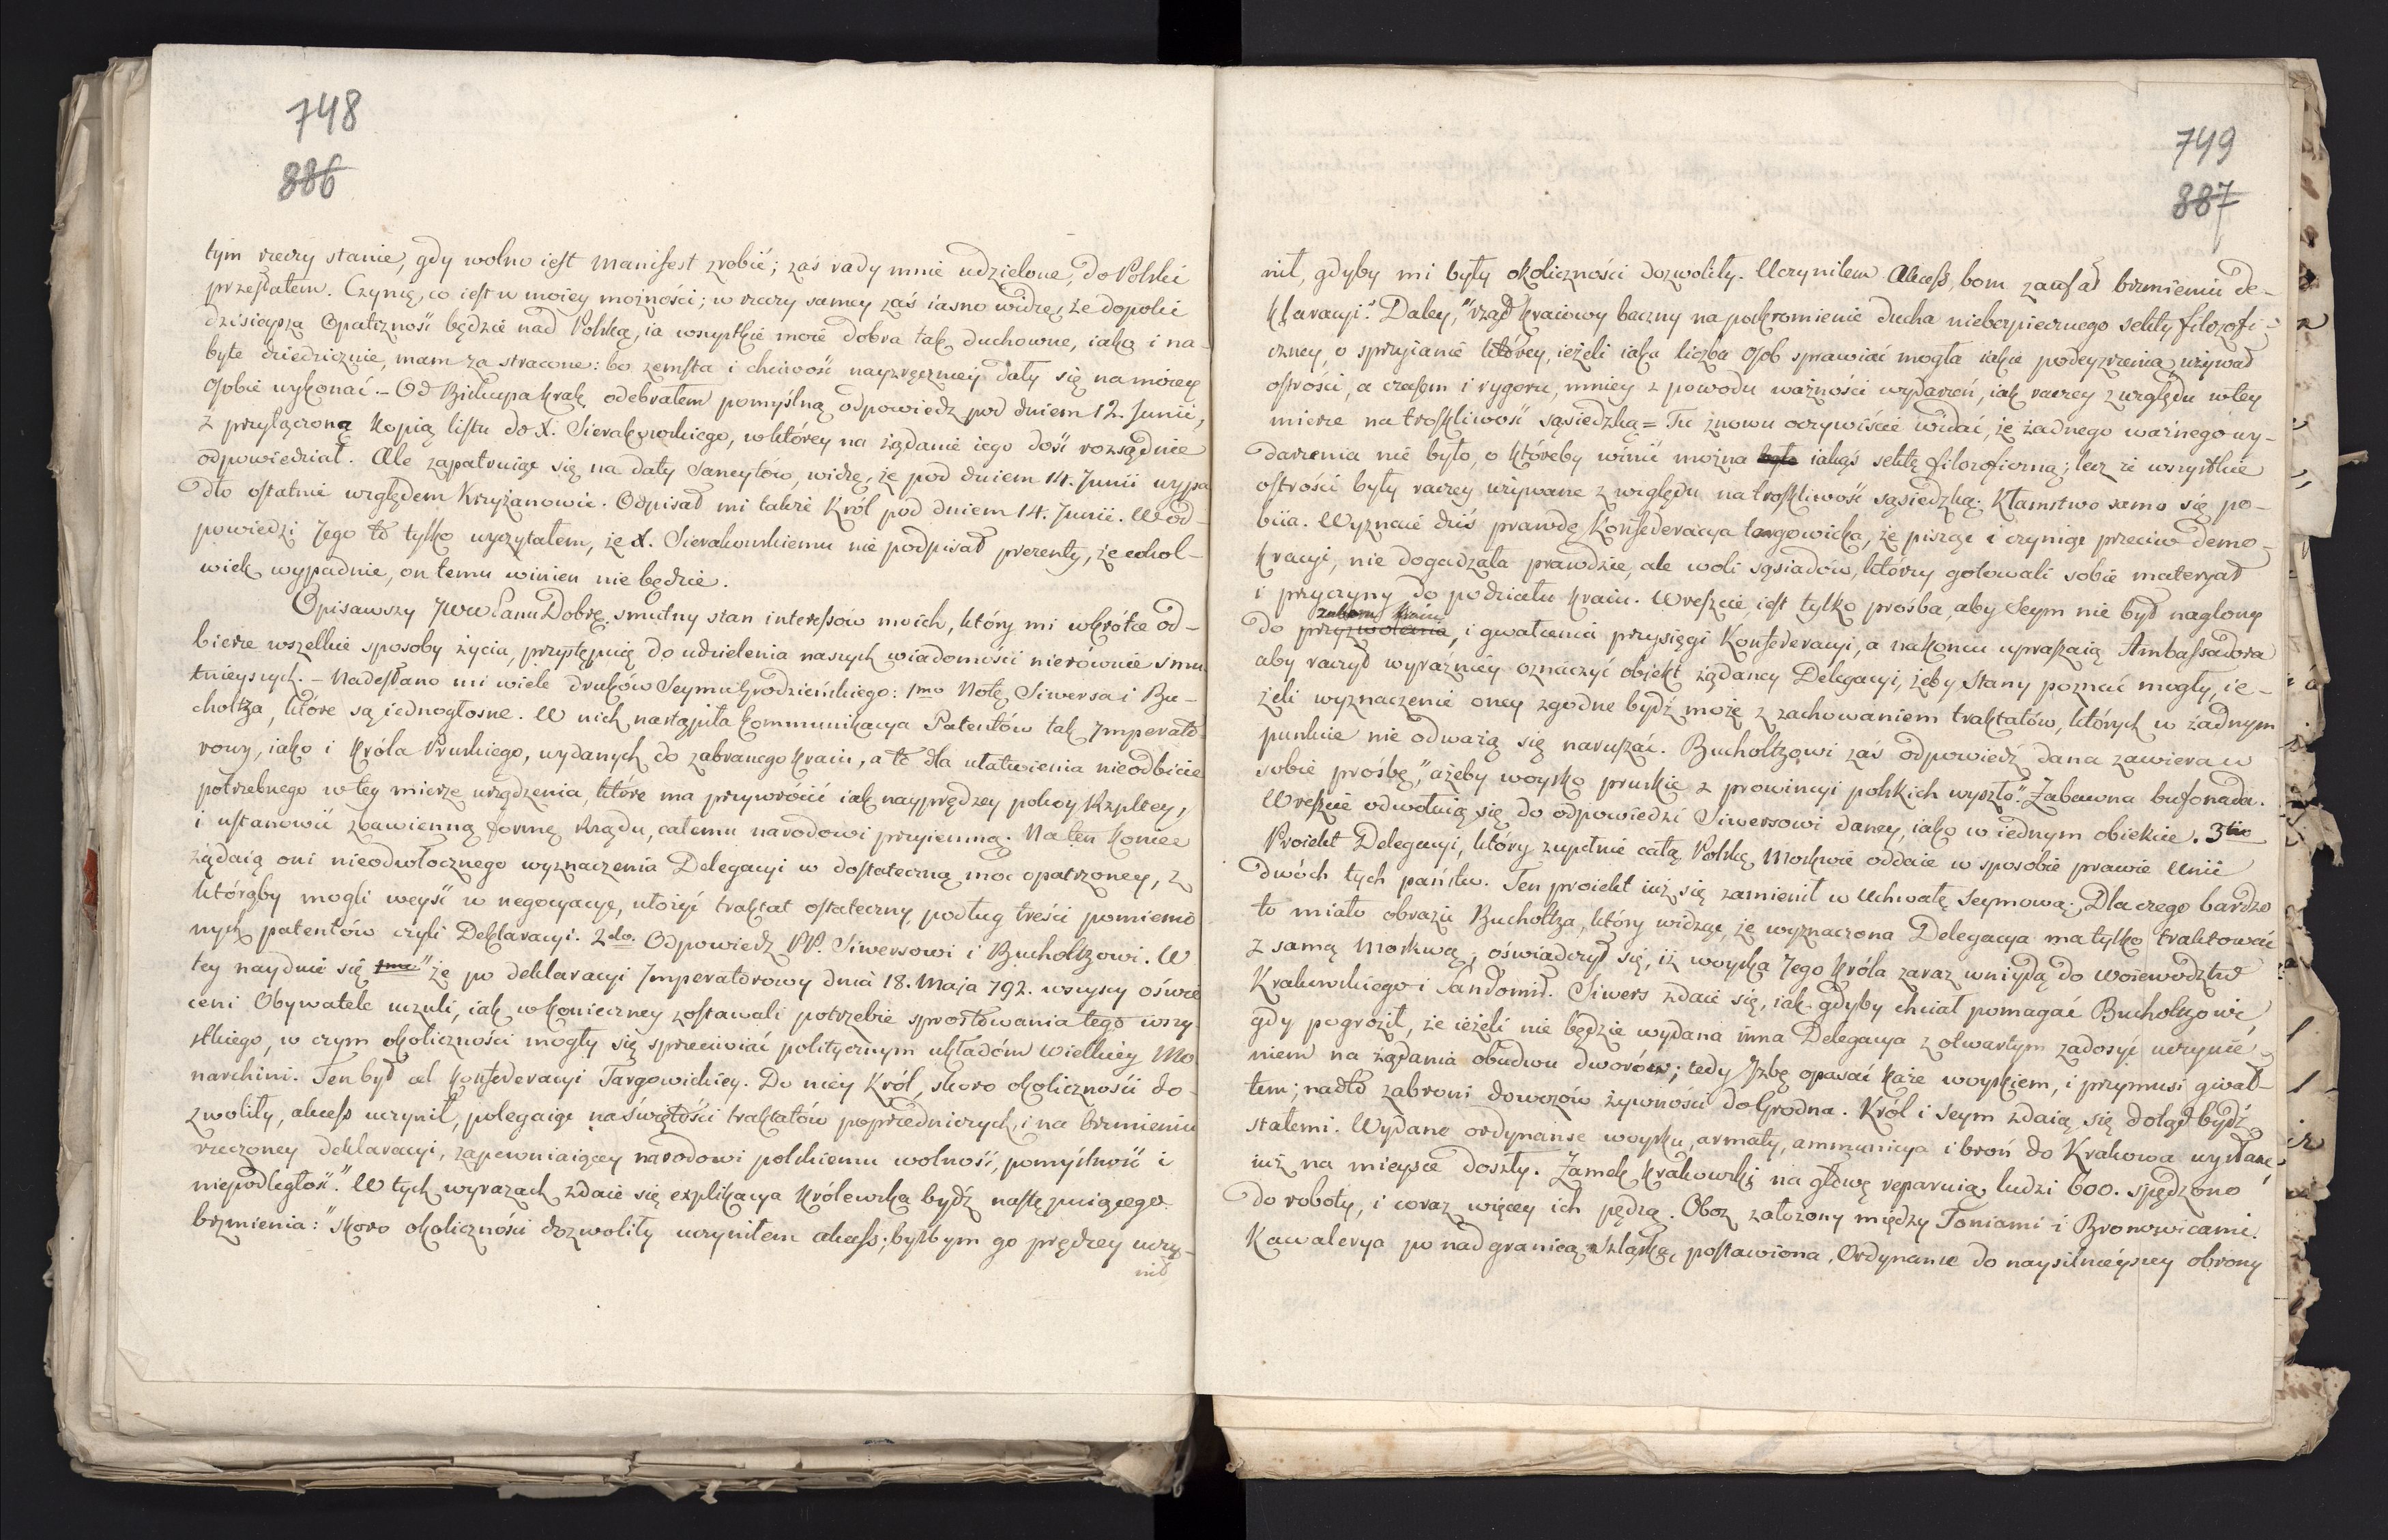 748
886
tym rzeczy stanie, gdy wolno iest Manifest zrobić; zaś rady mnie udzielone, do Polski
przesłałem. Czynię, co iest w moiey możności; w rzeczy samey zaś iasno widzę, że dopoki
dzisieysza Opatrzność będzie nad Polską, ia wszystkie moie dobra tak duchowne, iako i na-
byte dziedzicznie, mam za stracone: bo zemsta i chciwość nayzręczniey dały się na moiey
osobie wykonać. – Od Biskupa krak. odebrałem pomyślną odpowiedz pod dniem 12. Junii,
z przyłączoną kopią listu do X. Sierakowskiego, w którey na żądanie iego dość rozsądnie
odpowiedział. Ale zapatruiąc się na daty Sancytów, widzę, że pod dniem 14. Junii wypa
dło ostatnie względem Krzyżanowic. Odpisał mi także Król pod dniem 14. Junii. W od-
powiedzi Jego to tylko wyczytałem, że X. Sierakowskiemu nie podpisał prezenty, że cokol-
wiek wypadnie, on temu winien nie będzie.
Opisawszy JWW Panu Dobr. smutny stan interessów moich, który mi wkrótce od-
bierze wszelkie sposoby życia, przystępuię do udzielenia naszych wiadomości nierównie smu
tnieyszych. – Nadesłano mi wiele druków Seymu Grodzieńskiego: 1mo Notę Siwersa i Bu-
choltza, które są iednogłosne. W nich nastąpiła kommunikacya Patentów tak Jmperato-
rowy, iako i Króla Pruskiego, wydanych do zabranego kraiu, a to dla ułatwienia nieodbicie
potrzebnego w tey mierze urządzenia, które ma przywrócić iak nayprędzey pokoy Rzpltey,
i ustanowić zbawienną formę Rządu, całemu narodowi przyiemną. Na ten koniec
żądaią oni nieodwłocznego wyznaczenia Delegacyi w dostateczną moc opatrzoney, z
którąby mogli weyść w negocyacyę, ułożyć traktat ostateczny podług treści pomienio
nych patentów czyli Deklaracyi. 2do. Odpowiedz PP. Siwersowi i Bucholtzowi. W
tey nayduie się 1mo "że po deklaracyi Jmperatorowy dnia 18. Maja 792. wszyscy oświe
ceni Obywatele uczuli, iak w konieczney zostawali potrzebie sprostowania tego wszy
stkiego, w czym okoliczności mogły się sprzeciwiać politycznym układóm Wielkiey Mo
narchini. Ten był cel Konfederacyi Targowickiey. Do niey Król, skoro okoliczności do-
zwoliły, akcess uczynił, polegaiąc na świętości traktatów poprzedniczych, i na brzmieniu
rzeczoney deklaracyi, zapewniaiącey narodowi polskiemu wolność, pomyślność i
niepodległość". W tych wyrazach zdaie się explikacya królewska bydź następuiącego
brzmienia: "skoro okoliczności dozwoliły uczyniłem akcess; byłbym go prędzey uczy-
nił
749
887
nił, gdyby mi były okoliczności dozwoliły. Uczyniłem Akcess, bom zaufał brzmieniu de-
klaracyi". Daley, "rząd kraiowy baczny na poskromienie ducha niebezpiecznego sekty filozofi-
czney, o sprzyianie którey, ieżeli iaka liczba osob sprawiać mogła iakie podeyzrzenia, używał
ostrości, a czasem i rygoru, mniey z powodu ważności wydarzeń, iak raczey z względu w tey
mierze na troskliwość sąsiedzką = Tu znowu oczywiście widać, że żadnego ważnego wy-
darzenia nie było, o któreby winić można było iakąś sektę filozoficzną; lecz że wszystkie
ostrości były raczey używane z względu na troskliwość sąsiedzką. Kłamstwo samo się po-
biia. Wyznaie dziś prawdę Konfederacya targowicka, że pisząc i czyniąc przeciw demo-
kracyi, nie dogadzała prawdzie, ale woli sąsiadów, którzy gotowali sobie materyał
i przyczyny do podziału kraiu. Wreszcie iest tylko prośba, aby Seym nie był naglony
zaboru kraiu
do przyzwolenia, i gwałcenia przysięgi Konfederacyi, a nakoniec upraszaią Ambassadora
aby raczył wyraźniey oznaczyć obiekt żądaney Delegacyi, żeby Stany poznać mogły, ie-
żeli wyznaczenie oney zgodne bydź może z zachowaniem traktatów, których w żadnym
punkcie nie odważą się naruszać. Bucholtzowi zaś odpowiedź dana zawiera w
sobie prośbę, "ażeby woysko pruskie z prowincyi polskich wyszło". Zabawna bufonada.
Wreszcie odwołuią się do odpowiedzi Siwersowi daney, iako w iednym obiekcie. 3tio
Proiekt Delegacyi, który zupełnie całą Polskę Moskwie oddaie w sposobie prawie Unii
dwóch tych państw. Ten proiekt iuż się zamienił w Uchwałę Seymową. Dla czego bardzo
to miało obrazić Bucholtza, który widząc, że wyznaczona Delegacya ma tylko traktować
z samą Moskwą, oświadczył się, iż woyska Jego Króla zaraz wniydą do Woiewodztw
Krakowskiego i Sandomir. Siwers zdaie się, iak gdyby chciał pomagać Bucholtzowi,
gdy pogroził, że ieżeli nie będzie wydana inna Delegacya z otwartym zadosyć uczynie
niem na żądania obudwu dworów; tedy Jzbę opasać każe woyskiem, i przymusi gwał-
tem; nadto zabroni dowozów żywności do Grodna. Król i Seym zdaią się dotąd bydź
stałemi. Wydane ordynanse woysku, armaty, ammunicya i broń do Krakowa wysłane,
iuż na mieysce doszły. Zamek krakowski na głowę reparuią, ludzi 600. spędzono
do roboty, i coraz więcey ich pędzą. Oboz założony między Toniami i Bronowicami.
Kawalerya ponad granicą szląską postawiona. Ordynanse do naysilnieyszey obrony